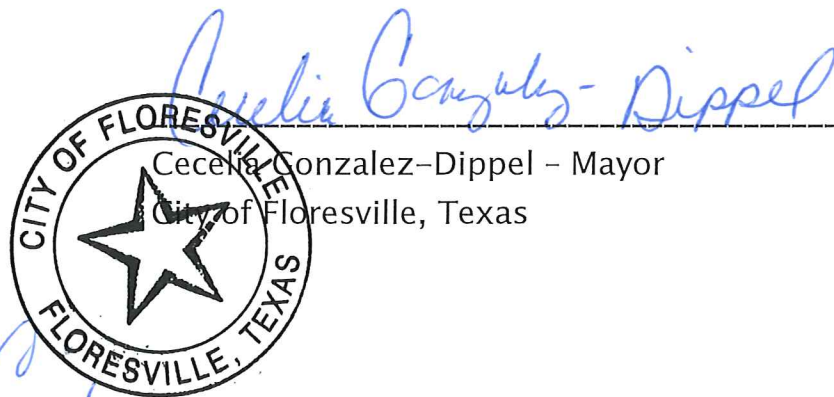 Cecelia Gonzalez-Dippel
Cecelia Gonzalez-Dippel - Mayor
City of Floresville, Texas
CITY OF FLORESVILLE
FLORESVILLE, TEXAS